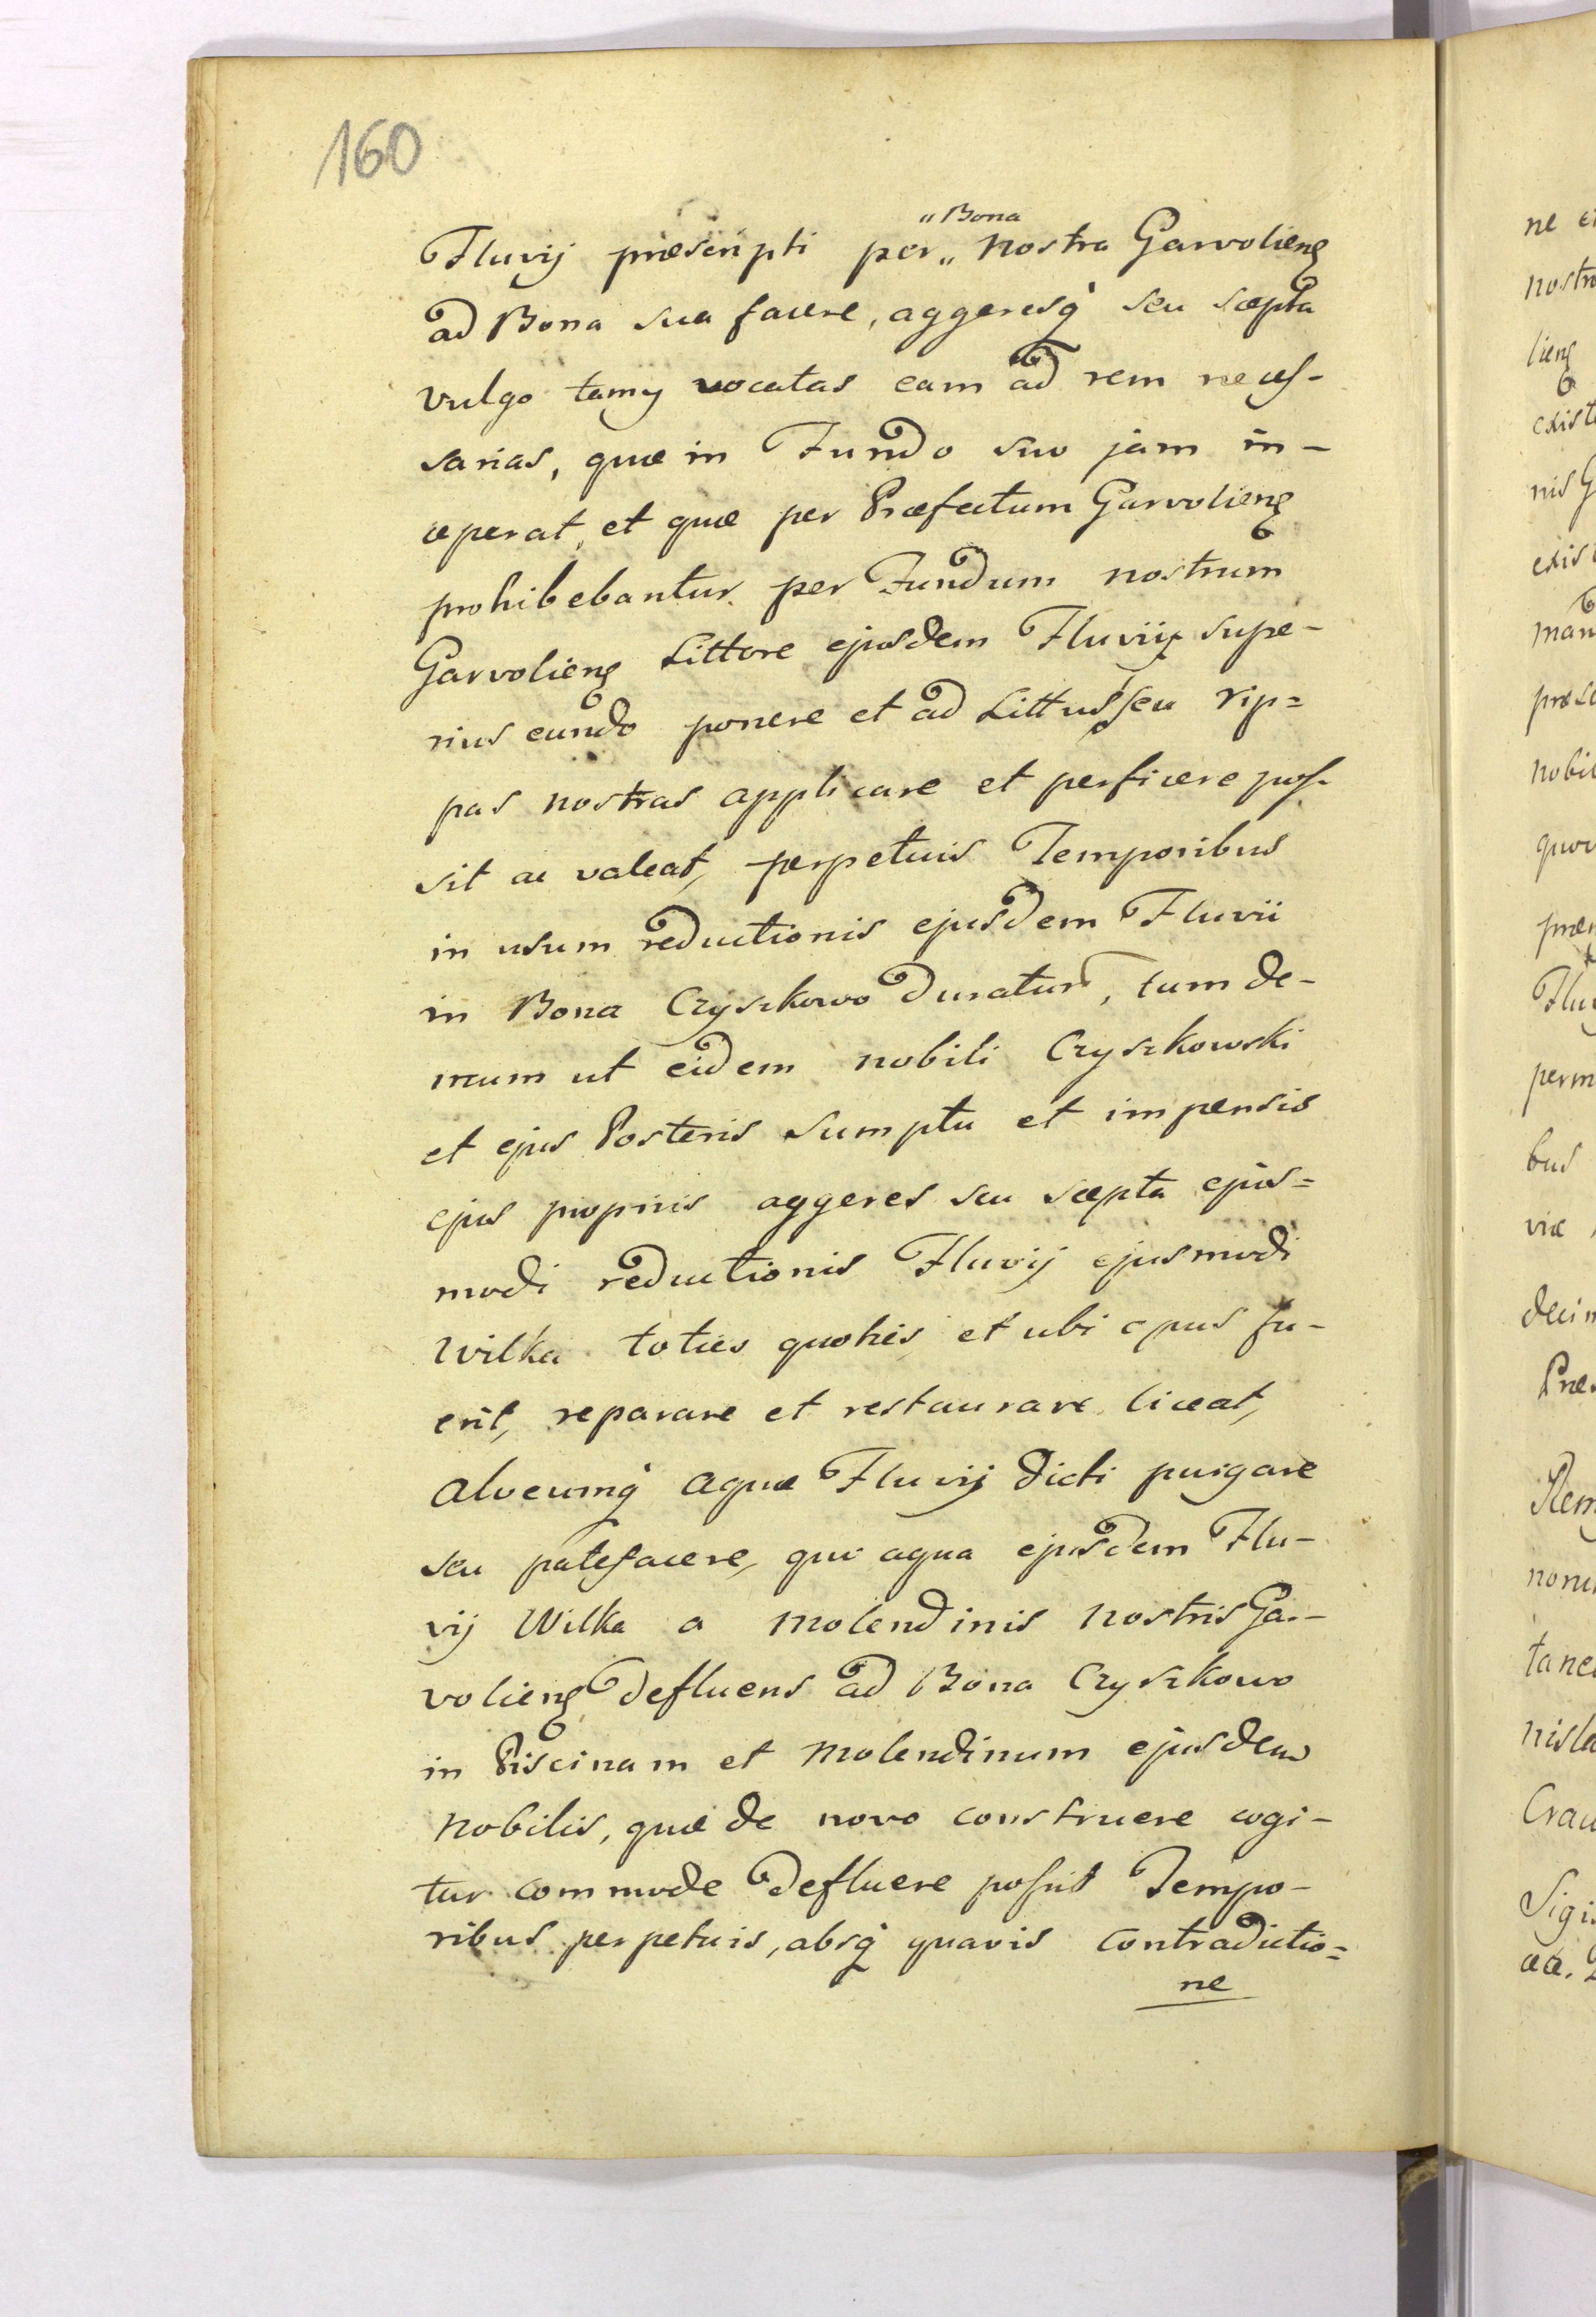 160
„Bona
Fluvij præscripti per „ nostra Garvolieng
ad Bona sua facere, aggeresq̀ seu sæpta
vulgo tamy vocatas eam ad rem neces-
sarias, quæ in Fundo suo jam in-
ceperat, et quæ per Præfectum Garvolieng
prohibebantur per Fundum nostrum
Garvolieng Littore ejusdem Fluvij supe-
rius eundo ponere et ad Littus seu rip=
pas nostras applicare et perficere pos-
sit ac valeat, perpetuis Temporibus
in usum reductionis ejusdem Fluvii
in Bona Czyszkowo duratur, tum de-
mum ut eidem nobili Czyszkowski
et ejus Posteris sumptu et impensis
ejus propriis aggeres seu sæpta ejus=
modi reductionis Fluvij ejusmodi
Wilka toties quoties et ubi opus fu-
erit, reparare et restaurare liceat,
alveumq̀ aquæ Fluvij dicti purgare
seu patefacere, quo aqua ejusdem Flu-
vij Wilka a molendinis nostris Gar-
volieng defluens ad Bona Czyszkowo
in Piscinam et molendinum ejusdem
nobilis, quæ de novo construere cogi-
tur commode defluere possit Tempo-
ribus perpetuis, absq̀ quavis contradictio=
ne
ne
nostra
lieng
nis G
bus
nobil
perm
Sigis